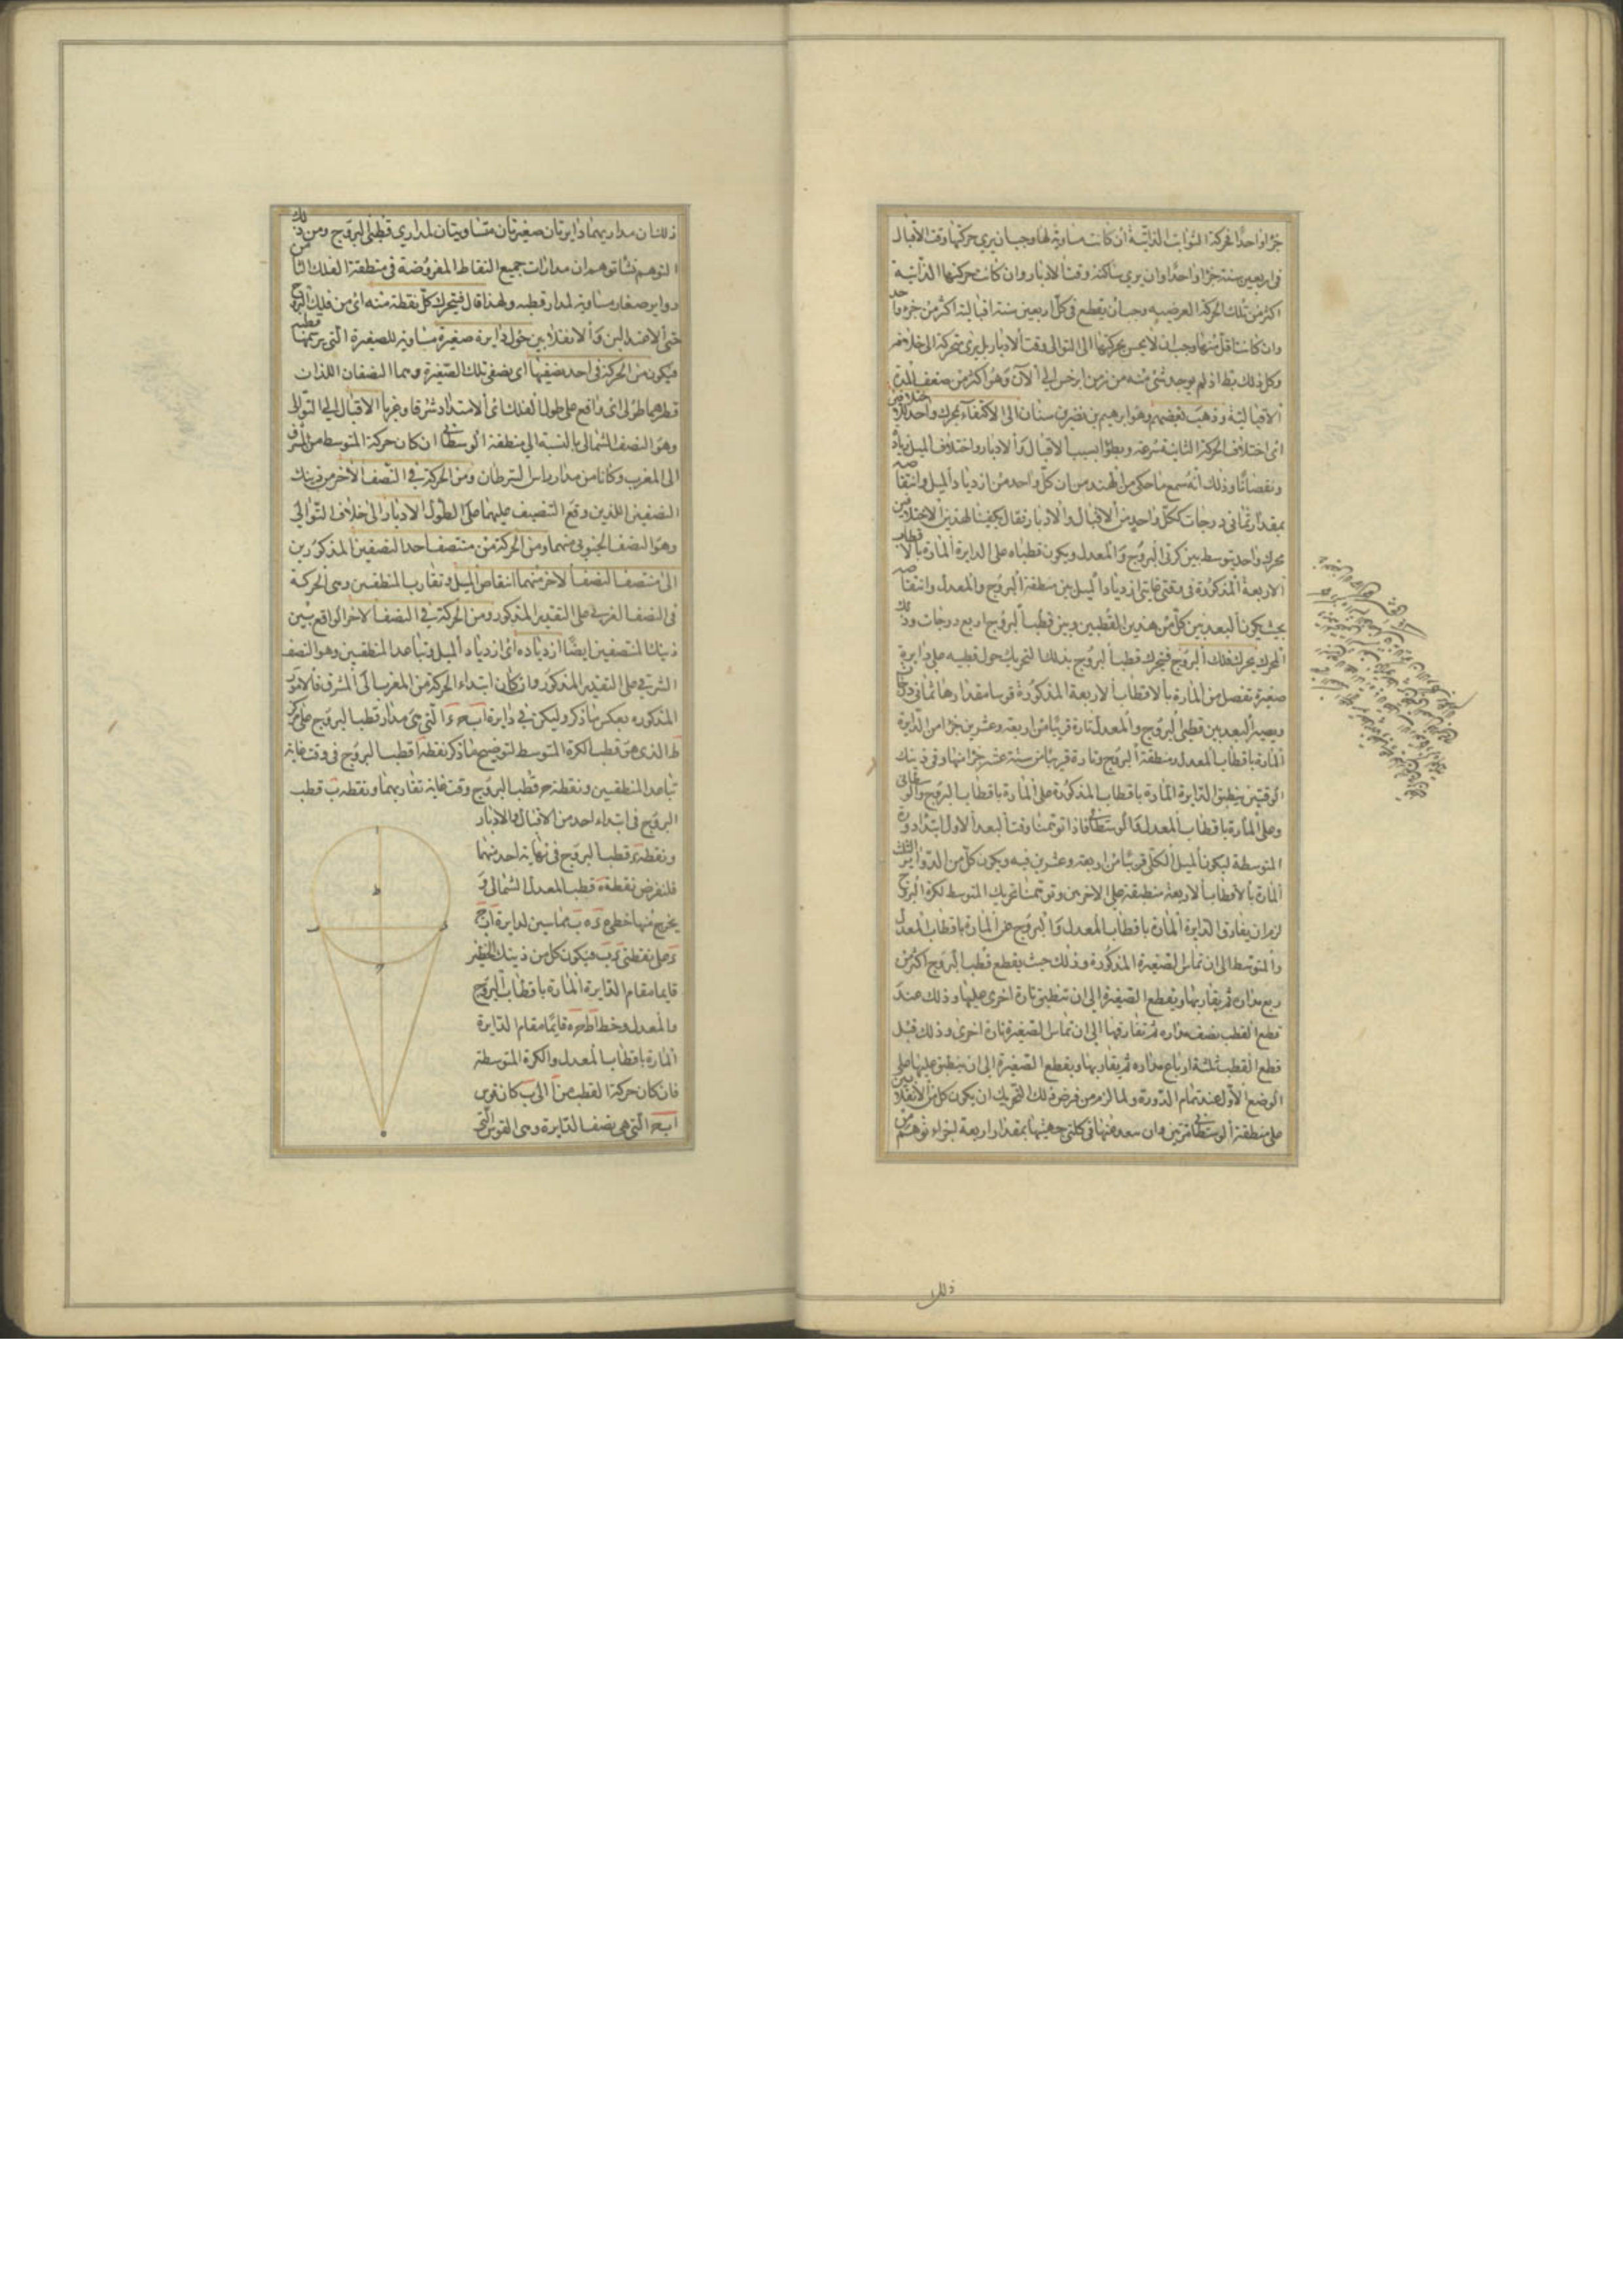 جزءا واحدا فحركة الثوابت الذاتية ان كانت مساوية لها وجب ان يرى حركتها وقت الاقبال
فى اربعين سنة جزءا واحدا وان يرى ساكنة وقت الادبار وان كانت حركتها الذاتية
اكثر من تلك الحركة العرضيه وجب ان يقطع فى كل اربعين سنة اقبالية اكثر من جزء واحد
وان كانت اقل منها وجب ان لا يحس بحركتها الى التوالى وقت الادبار بل يرى متحركة الى خلافه
وكل ذلك بط اذ لم يوجد شئ منه من زمن ابرخس الى الآن وهو اكثر من ضعف المدة
الاقبالية وذهب بعضهم وهو ابرهيم بن سنان الى الاكتفاء بمحرك واحد للاختلافين
اى اختلاف الحركة الثانية سرعة وبطؤا بسبب الاقبال والادبار واختلاف الميل زيادة
ونقصانا وذلك انه سمع ما حكى من الهند من ان كل واحد من ازدياد الميل وانتقاصه
بمقدار ثمانى درجات ككل واحد من الاقبال والادبار فقال بكفينا لهذين الاختلافين
محرك واحد يتوسط بين كرتى البروج والمعدل ويكون قطباه على الدايرة المارة بالاقطاب
الاربعة المذكورة فى وقتى غايتى ازدياد الميل بين منطقة البروج والمعدل وانتقاصه
بحيث يكون البعد بين كل من هذين القطبين وبين قطب البروج اربع درجات وذلك
المحرك يحرك فلك البروج فيتحرك قطب البروج بذلك التحريك حول قطبيه على دايرة
صغيرة تفصل من المارة بالاقطاب الاربعة المذكورة قوسا مقدارها ثمانى درجات
ويصير البعد بين قطبى البروج والمعدل تارة قريبا من اربعة وعشرين جزءا من الدايرة
المارة باقطاب المعدل ومنطقة البروج وتارة قريبا من ستة عشر جزءا منها وفى ذينك
الوقتين ينطبق الدايرة المارة باقطاب المذكورة على المارة باقطاب البروج والوسطانى
وعلى المارة باقطاب المعدل والوسطانى فاذا توهمنا وقت البعد الاول ابتداء دورة
المتوسطة ليكون الميل الكلى قريبا من اربعة وعشرين فيه ويكون كل من الدواير الثلث
المارة بالاقطاب الاربعة منطبقة على الاخريين وتوهمنا تحريك المتوسط لكرة البروج
لزم ان يفارق الدايرة المارة باقطاب المعدل والبروج عن المارة باقطاب المعدل
والمتوسط الى ان تماس الصغيرة المذكورة وذلك حيث يقطع قطب البروج اكثر من
ربع مداره ثم يقاربها ويقطع الصغيرة الى ان تنطبق تارة اخرى عليها وذلك عند
قطع القطب نصف مداره ثم تفارقها الى ان تماس الصغيرة تارة اخرى وذلك قبل
قطع القطب ثلثة ارباع مداره ثم يقاربها ويقطع الصغيرة الى ان ينطبق عليها على
الوضع الاول عند تمام الدورة ولما لزم من فرض ذلك التحريك ان يكون كل من الانقلابين
على منطقة الوسطانى مرتين وان يبعد عنها فى كلتى جهتيها بمقدار اربعة اجزاء توهم من
ذلك
ذلك ان مداريهما دايرتان صغيرتان متساويتان لمدارى قطبى البروج ومن ذلك
التوهم نشأ توهم ان مدارات جميع النقاط المفروضة فى منطقة الفلك الثامن
دواير صغار مساوية لمدار قطبه ولهذا قال فيتحرك كل نقطة منه اى من فلك البروج
حتى الاعتدالين والانقلابين حول دايرة صغيرة مساوية للصغيرة التى يرسمها قطبه
فيكون من الحركة فى احد نصفيها اى نصفى تلك الصغيرة وهما النصفان اللذان
قطرهما طولى اى واقع على طول الفلك اى الامتداد شرقا وغربا الاقبال الى التوالى
وهو النصف الشمالى بالنسبة الى منطقة الوسطانى ان كان حركة المتوسط من المشرق
الى المغرب وكانا من مدار راس السرطان ومن الحركة فى النصف الاخر من ذينك
النصفين اللذين وقع التنصيف عليهما على الطول الادبار الى خلاف التوالى
وهو النصف الجنوبى منهما ومن الحركة من منتصف احد النصفين المذكورين
الى منتصف النصف الاخر منهما انتقاص الميل وتقارب المنطقتين وهى الحركة
فى النصف الغربى على التقدير المذكور ومن الحركة فى النصف الاخر الواقع بين
ذينك المنتصفين ايضا ازدياده اى ازدياد الميل وتباعد المنطقتين وهو النصف
الشرقى على التقدير المذكور وان كان ابتداء الحركة من المغرب الى المشرق فالامور
المذكوره بعكس ما ذكر وليكن فى دايرة ابحد التى هى مدار قطب البروج على مركز
ط الذى هو قطب الكرة المتوسط لتوضيح ما ذكر نقطة ا قطب البروج فى وقت غاية
تباعد المنطقتين ونقطة ح قطب البروج وقت غاية تقاربهما ونقطة ب قطب
البروج فى ابتداء احد من الاقبال والادبار
ونقطة د قطب البروج فى نهاية احد منهما
فلنفرض نقطة ه قطب المعدل الشمالى و
يخرج منها خطى ه د ه ب مماسين لدايرة ابح
د على نقطتى د ب فيكون كل من ذينك الخطين
قايما مقام الدايرة المارة باقطاب البروج
والمعدل وخط اطحه قايما مقام الدايرة
المارة باقطاب المعدل والكرة المتوسطة
فان كان حركة القطب من ا الى ب كان قوس
ابح التى هى نصف الدايرة وهى القوس التى
ا
ط
ب
د
ح
ه